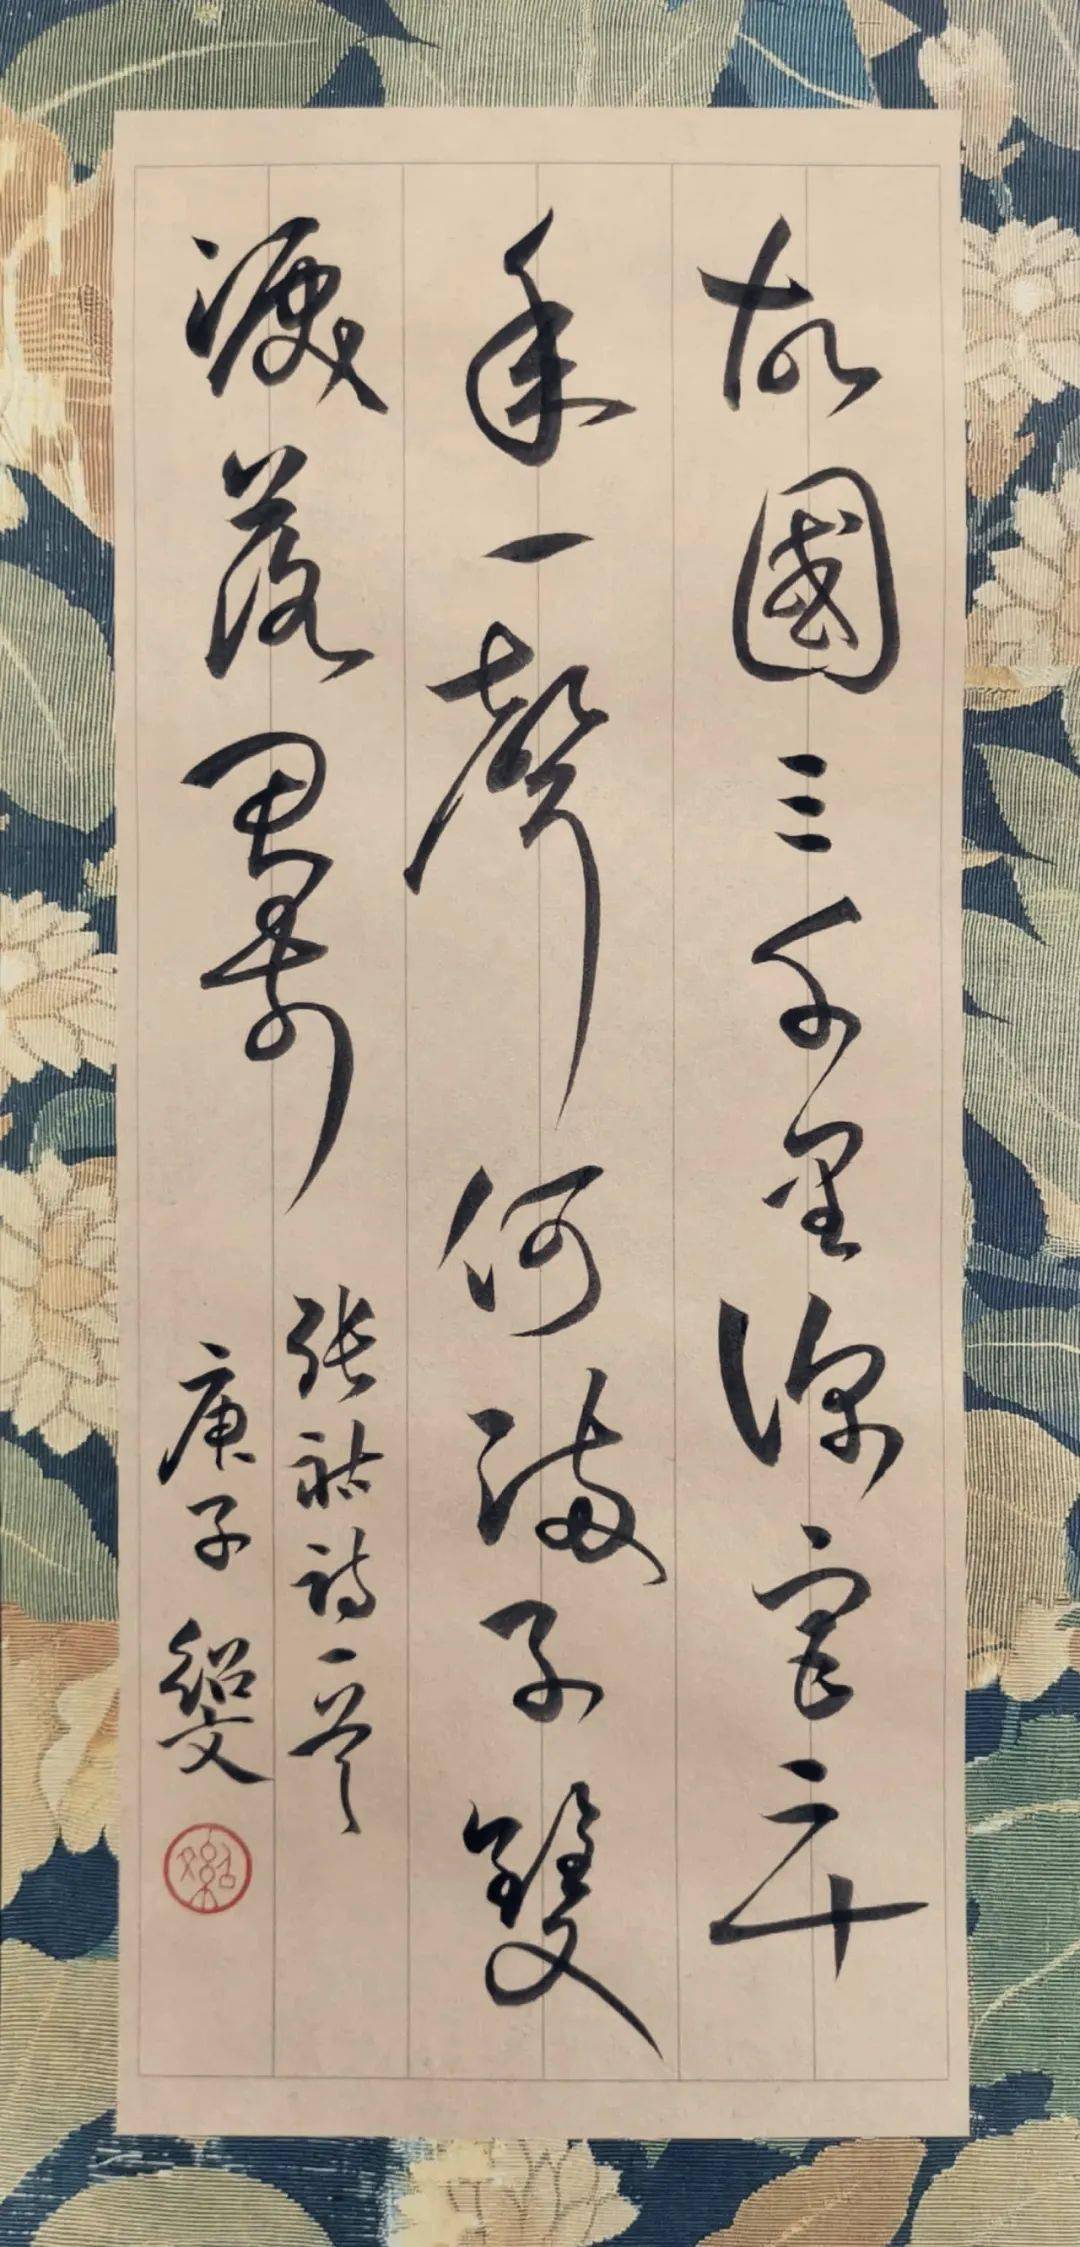 故國三千里深宮二十
年一聲何滿子雙
淚落君前
张祜诗一首
庚子 紹文